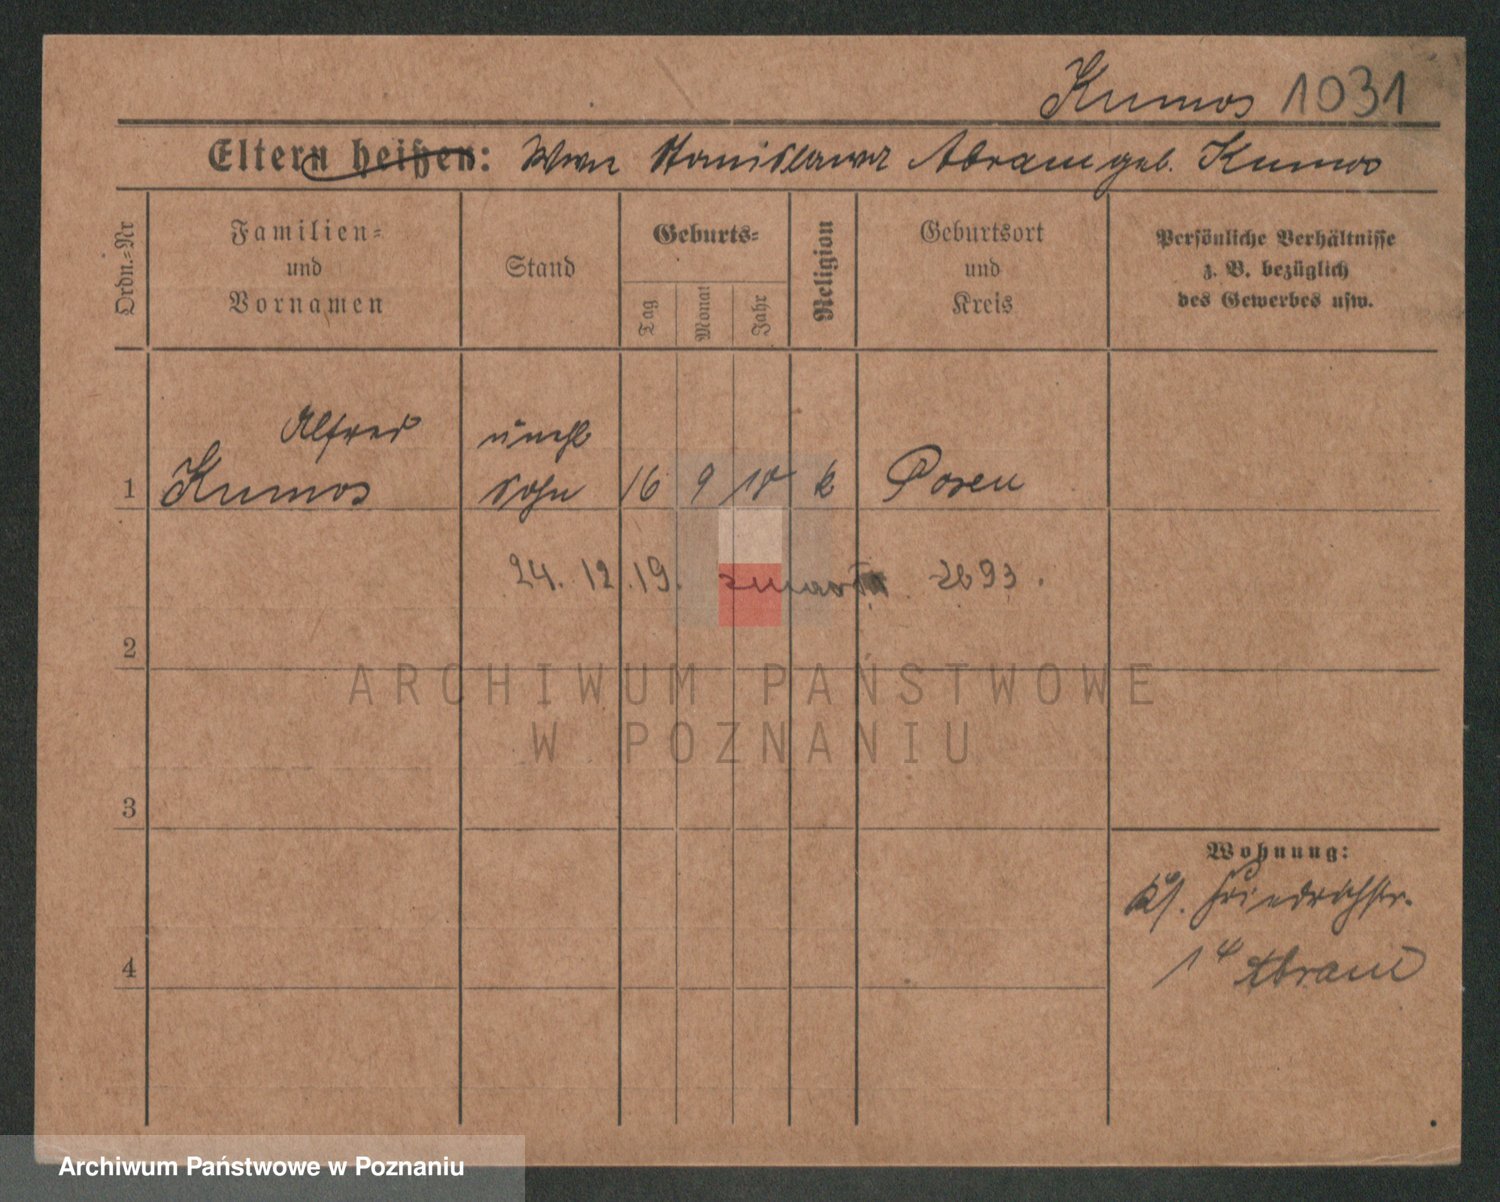 Kumos 1031
Eltern heißen: Wwe Stanislawa Abram geb. Kumos
Ordn.=Nr
Familien=
und
Vornamen
Stand
Geburts=
Tag
Monat
Jahr
Religion
Geburtsort
und
Kreis
Persönliche Verhältnisse
z. B. bezüglich
des Gewerbes usw.
Alfred unehl
1 Kumos Sohn 16 9 18 k Posen
24. 12. 19. 2693.
2
ARCHIWUM PAŃSTWOWE
W POZNANIU
3
Wohnung:
Friedrichstr.
4
Abram
Archiwum Państwowe w Poznaniu